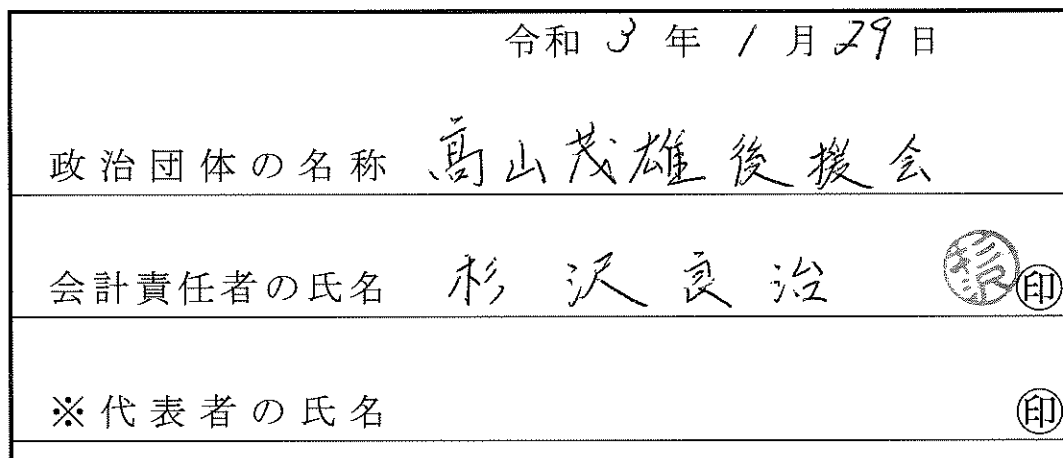 令和 3 年 1 月 29 日
政治団体の名称 髙山茂雄後援会
会計責任者の氏名 杉沢良治 杉沢 ㊞
※代表者の氏名 ㊞